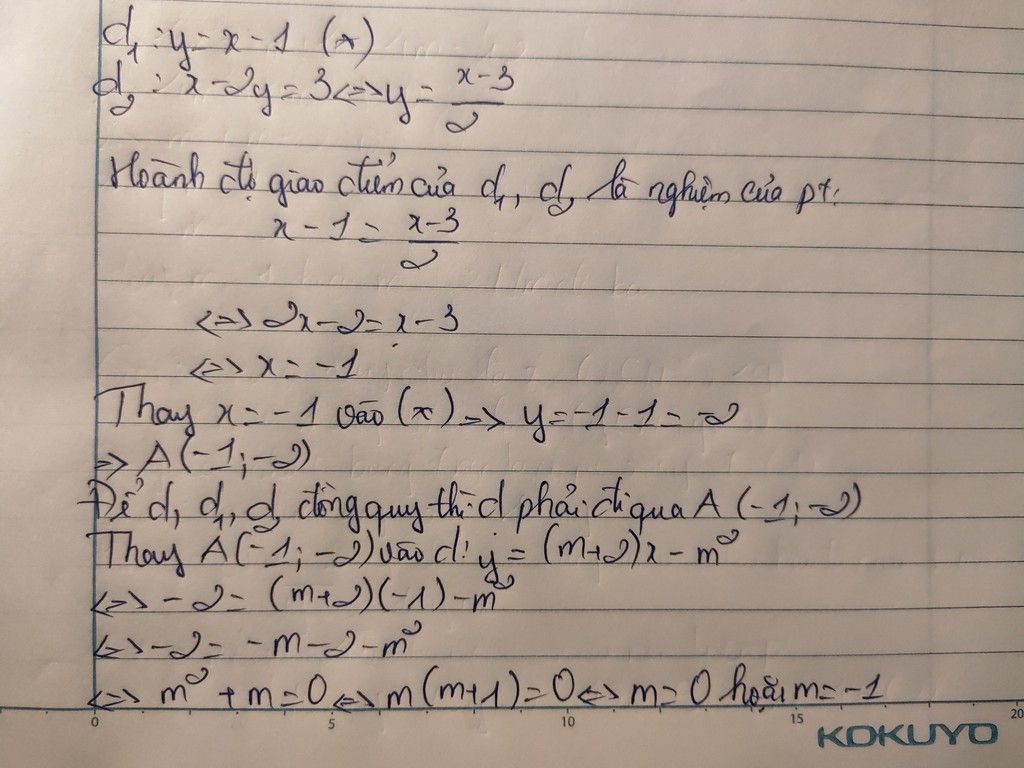 d₁ : y = x - 1 (*)
d₂ : x - 2y = 3 <=> y = (x-3)/2
Hoành độ giao điểm của d₁, d₂ là nghiệm của pt:
x - 1 = (x-3)/2
<=> 2x - 2 = x - 3
<=> x = -1
Thay x = -1 vào (*) => y = -1 - 1 = -2
=> A(-1; -2)
Để d, d₁, d₂ đồng quy thì d phải đi qua A (-1; -2)
Thay A(-1; -2) vào d: y = (m+2)x - m²
<=> -2 = (m+2)(-1) - m²
<=> -2 = -m - 2 - m²
<=> m² + m = 0 <=> m(m+1) = 0 <=> m = 0 hoặc m = -1
0 5 10 15 20
KOKUYO